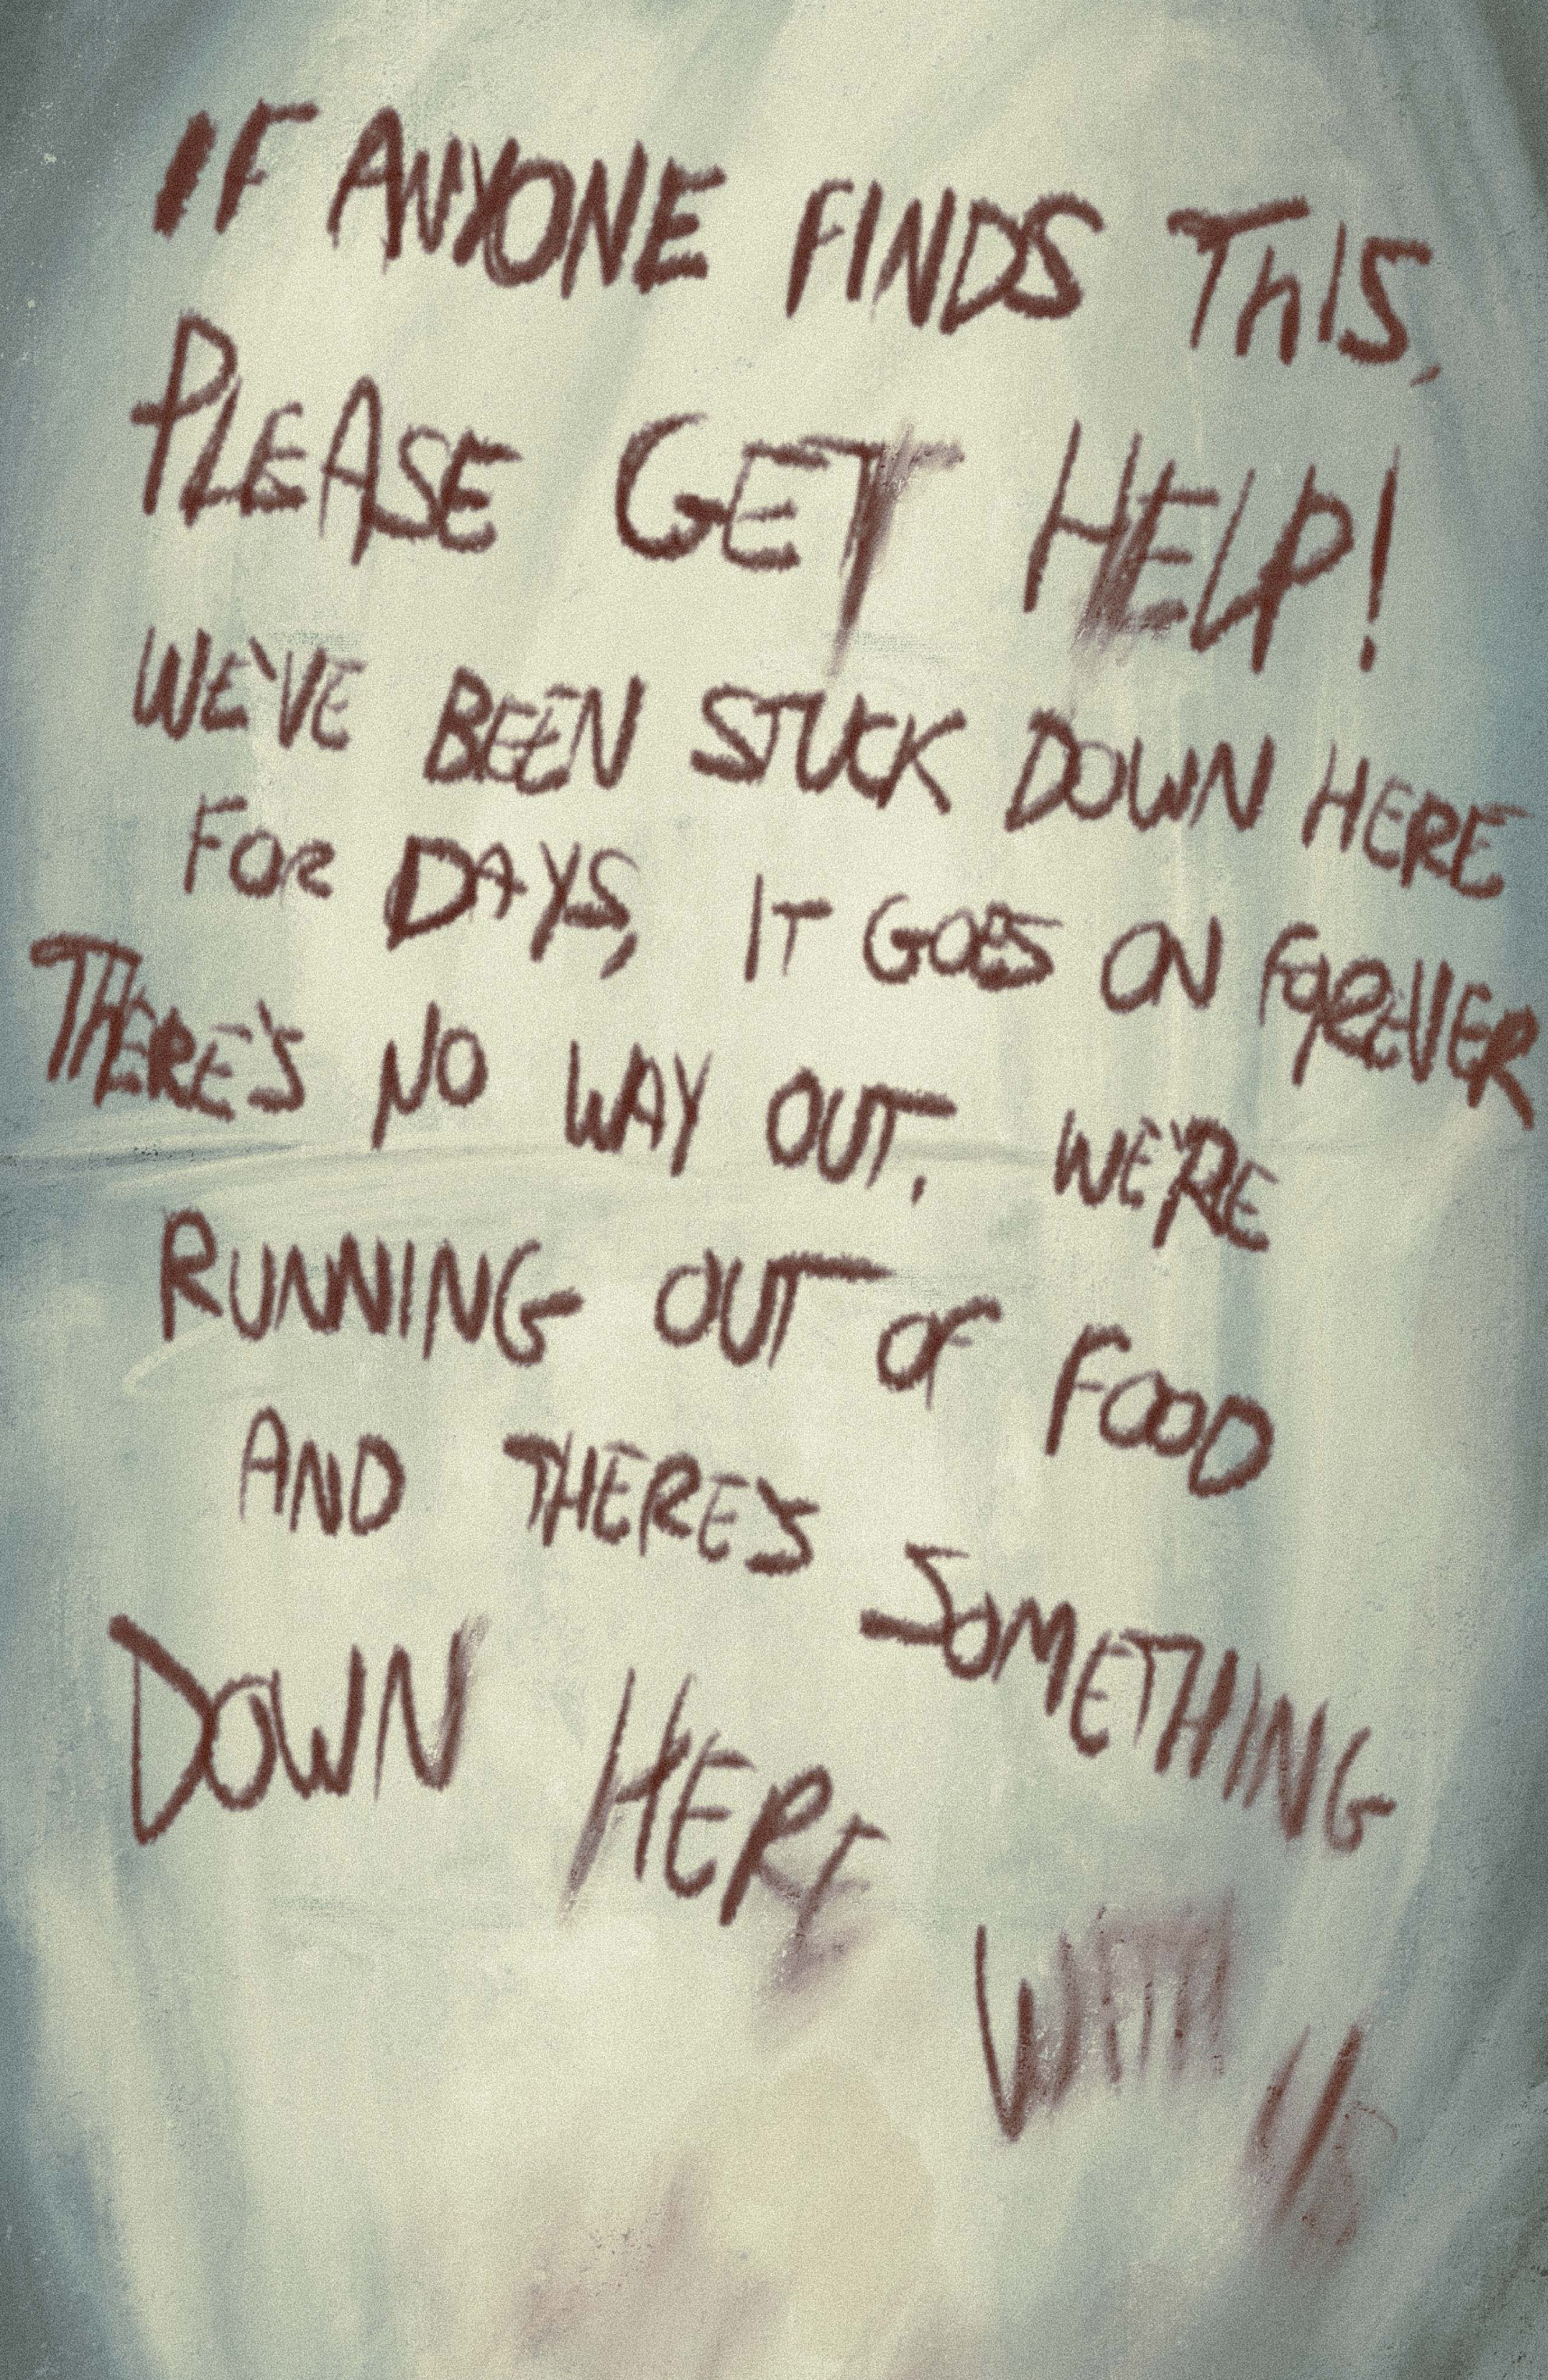 IF ANYONE FINDS THIS,
PLEASE GET HELP!
WE'VE BEEN STUCK DOWN HERE
FOR DAYS, IT GOES ON FOREVER
THERE'S NO WAY OUT. WE'RE
RUNNING OUT OF FOOD
AND THERE'S SOMETHING
DOWN HERE
WITH US